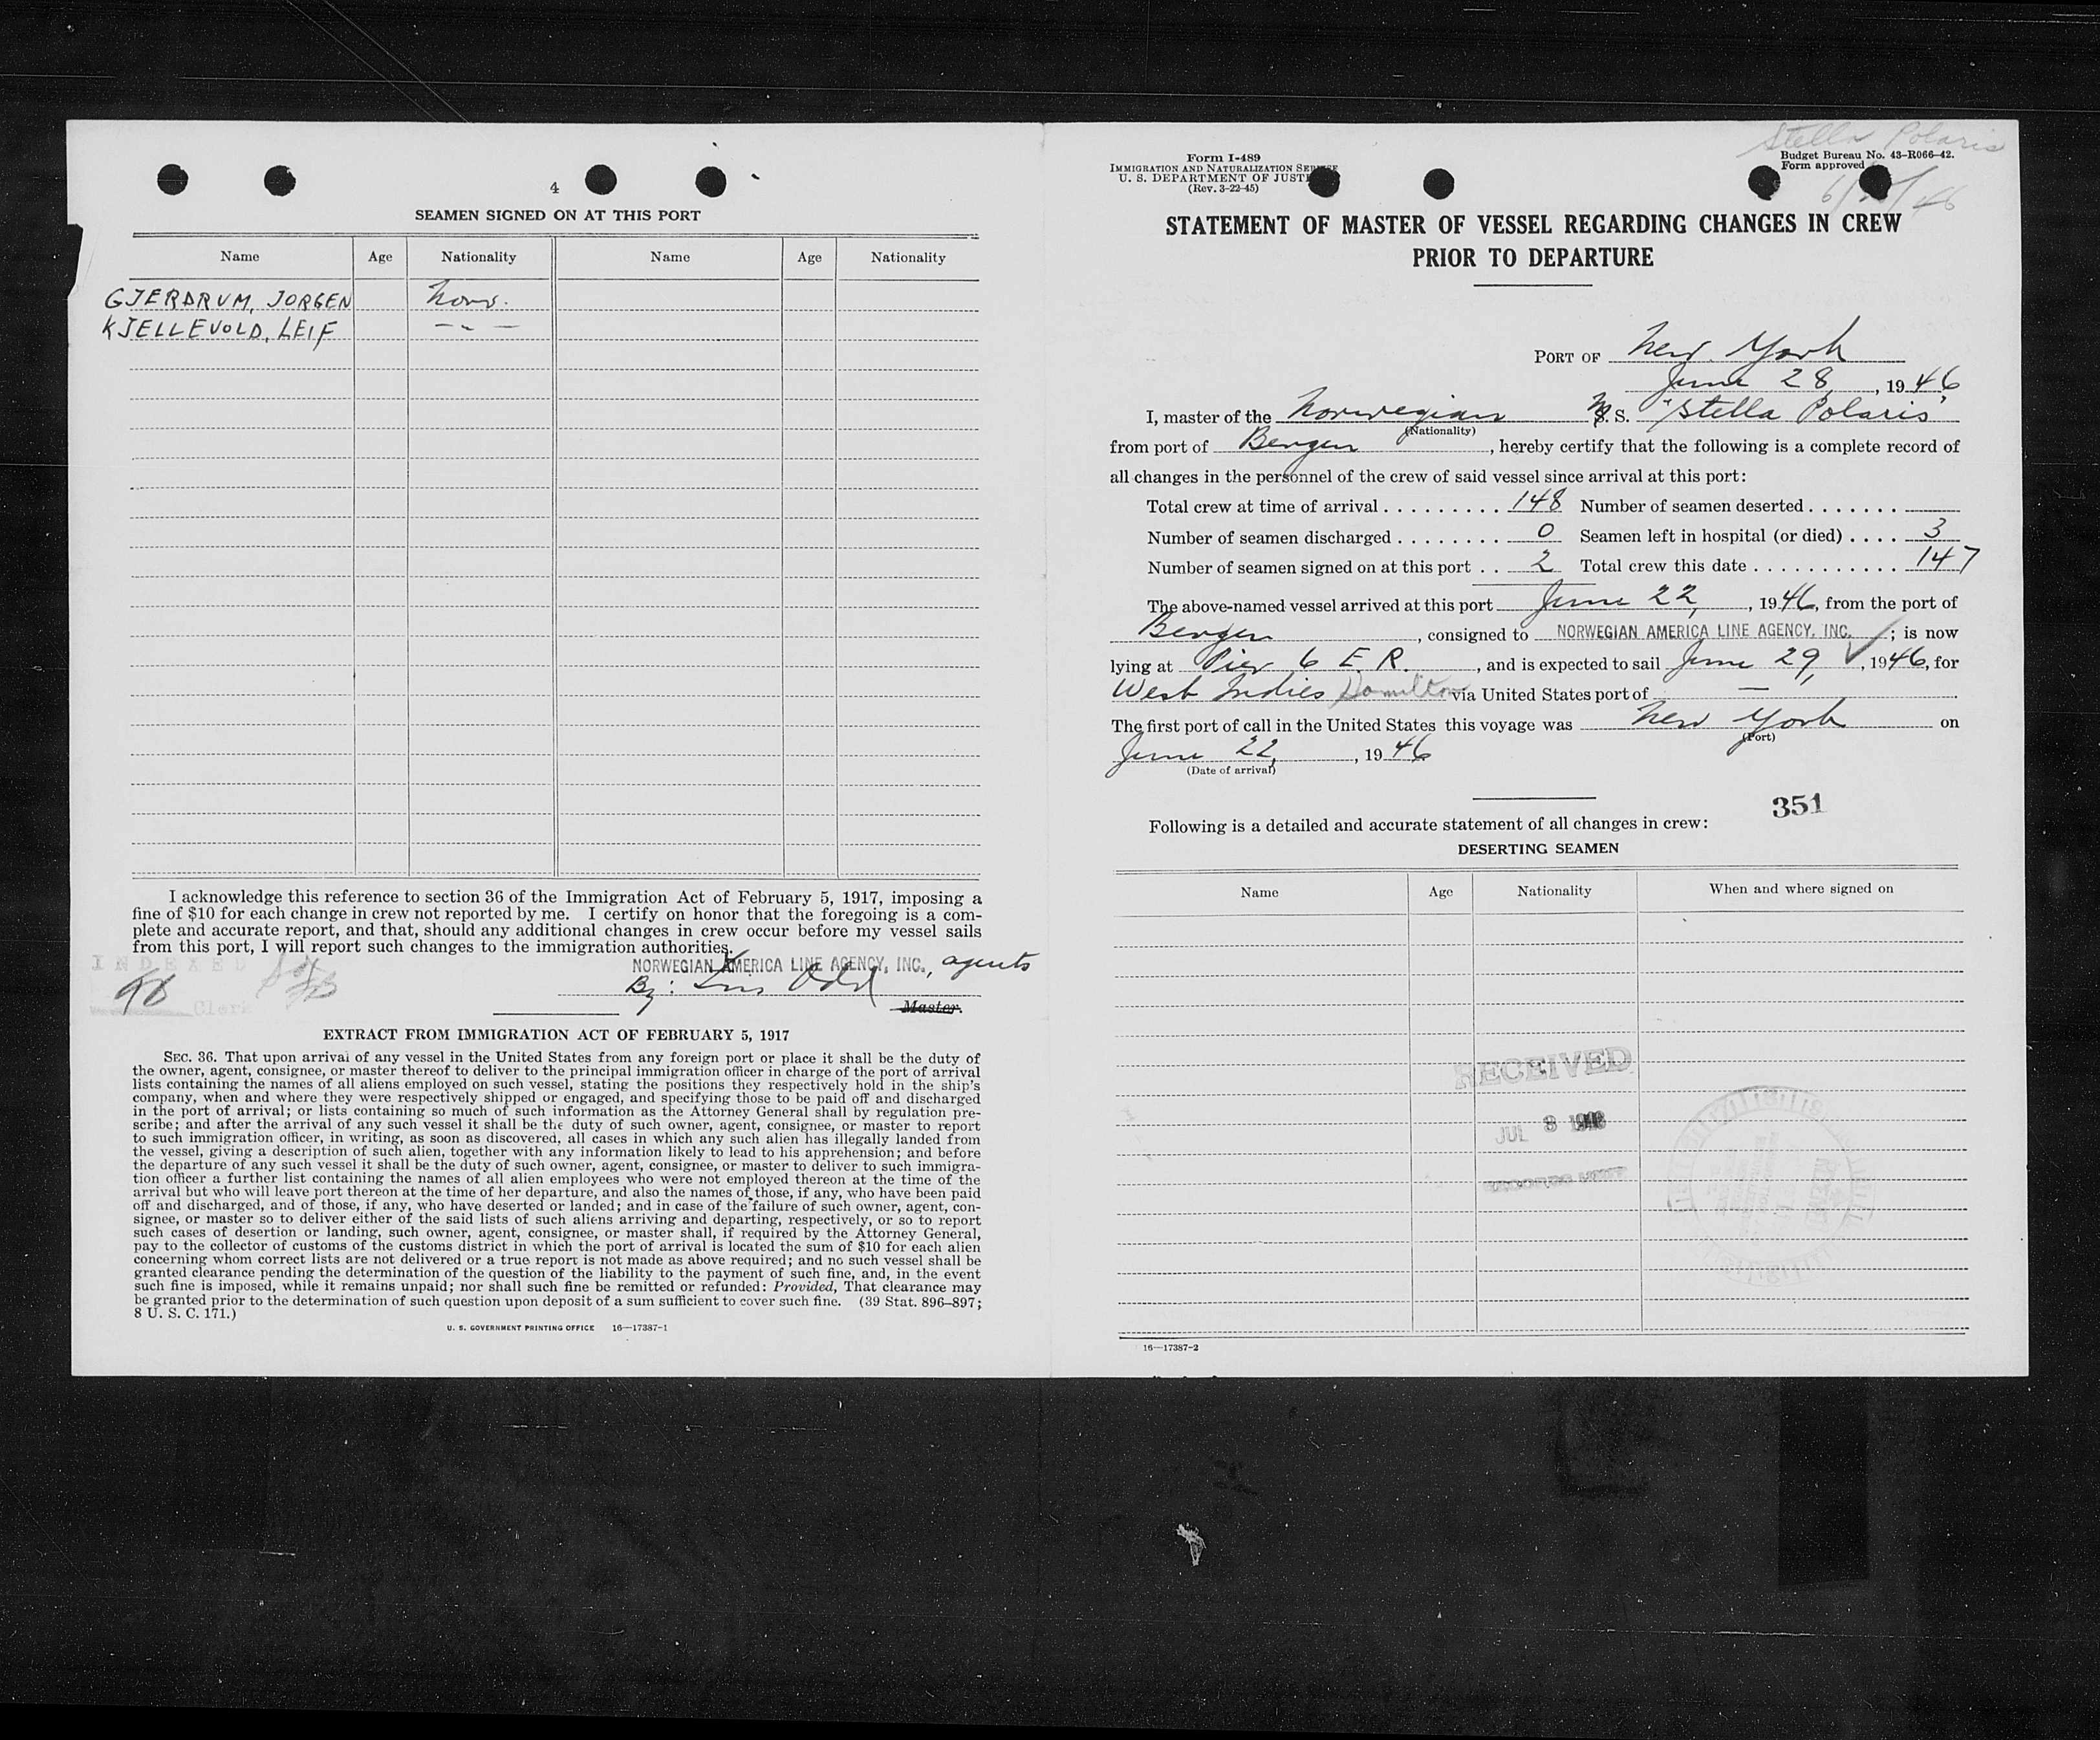 4
SEAMEN SIGNED ON AT THIS PORT
Name Age Nationality Name Age Nationality
GJERDRUM, JORGEN Norw.
KJELLEVOLD, LEIF — " —
I acknowledge this reference to section 36 of the Immigration Act of February 5, 1917, imposing a
fine of $10 for each change in crew not reported by me. I certify on honor that the foregoing is a com-
plete and accurate report, and that, should any additional changes in crew occur before my vessel sails
from this port, I will report such changes to the immigration authorities.
INDEXED
NORWEGIAN AMERICA LINE AGENCY, INC., agents
By:
Clerk
Master.
EXTRACT FROM IMMIGRATION ACT OF FEBRUARY 5, 1917
SEC. 36. That upon arrival of any vessel in the United States from any foreign port or place it shall be the duty of
the owner, agent, consignee, or master thereof to deliver to the principal immigration officer in charge of the port of arrival
lists containing the names of all aliens employed on such vessel, stating the positions they respectively hold in the ship's
company, when and where they were respectively shipped or engaged, and specifying those to be paid off and discharged
in the port of arrival; or lists containing so much of such information as the Attorney General shall by regulation pre-
scribe; and after the arrival of any such vessel it shall be the duty of such owner, agent, consignee, or master to report
to such immigration officer, in writing, as soon as discovered, all cases in which any such alien has illegally landed from
the vessel, giving a description of such alien, together with any information likely to lead to his apprehension; and before
the departure of any such vessel it shall be the duty of such owner, agent, consignee, or master to deliver to such immigra-
tion officer a further list containing the names of all alien employees who were not employed thereon at the time of the
arrival but who will leave port thereon at the time of her departure, and also the names of those, if any, who have been paid
off and discharged, and of those, if any, who have deserted or landed; and in case of the failure of such owner, agent, con-
signee, or master so to deliver either of the said lists of such aliens arriving and departing, respectively, or so to report
such cases of desertion or landing, such owner, agent, consignee, or master shall, if required by the Attorney General,
pay to the collector of customs of the customs district in which the port of arrival is located the sum of $10 for each alien
concerning whom correct lists are not delivered or a true report is not made as above required; and no such vessel shall be
granted clearance pending the determination of the question of the liability to the payment of such fine, and, in the event
such fine is imposed, while it remains unpaid; nor shall such fine be remitted or refunded: Provided, That clearance may
be granted prior to the determination of such question upon deposit of a sum sufficient to cover such fine. (39 Stat. 896–897;
8 U. S. C. 171.)
U. S. GOVERNMENT PRINTING OFFICE 16—17387-1
Stella Polaris
Form I-489
IMMIGRATION AND NATURALIZATION SERVICE
U. S. DEPARTMENT OF JUSTICE
(Rev. 3-22-45)
Budget Bureau No. 43-R066-42.
Form approved
STATEMENT OF MASTER OF VESSEL REGARDING CHANGES IN CREW
PRIOR TO DEPARTURE
PORT OF New York
June 28, 1946
I, master of the Norwegian M. S. "Stella Polaris"
(Nationality)
from port of Bergen, hereby certify that the following is a complete record of
all changes in the personnel of the crew of said vessel since arrival at this port:
Total crew at time of arrival . . . . . . . . . 148 Number of seamen deserted . . . . . . .
Number of seamen discharged . . . . . . . . 0 Seamen left in hospital (or died) . . . . 3
Number of seamen signed on at this port . . 2 Total crew this date . . . . . . . . . . . 147
The above-named vessel arrived at this port June 22, 1946, from the port of
Bergen, consigned to NORWEGIAN AMERICA LINE AGENCY, INC.; is now
lying at Pier 6 E. R., and is expected to sail June 29, 1946, for
West Indies Hamilton via United States port of —
The first port of call in the United States this voyage was New York on
(Port)
June 22, 1946
(Date of arrival)
351
Following is a detailed and accurate statement of all changes in crew:
DESERTING SEAMEN
Name Age Nationality When and where signed on
RECEIVED
JUL 3 1946
16—17387-2